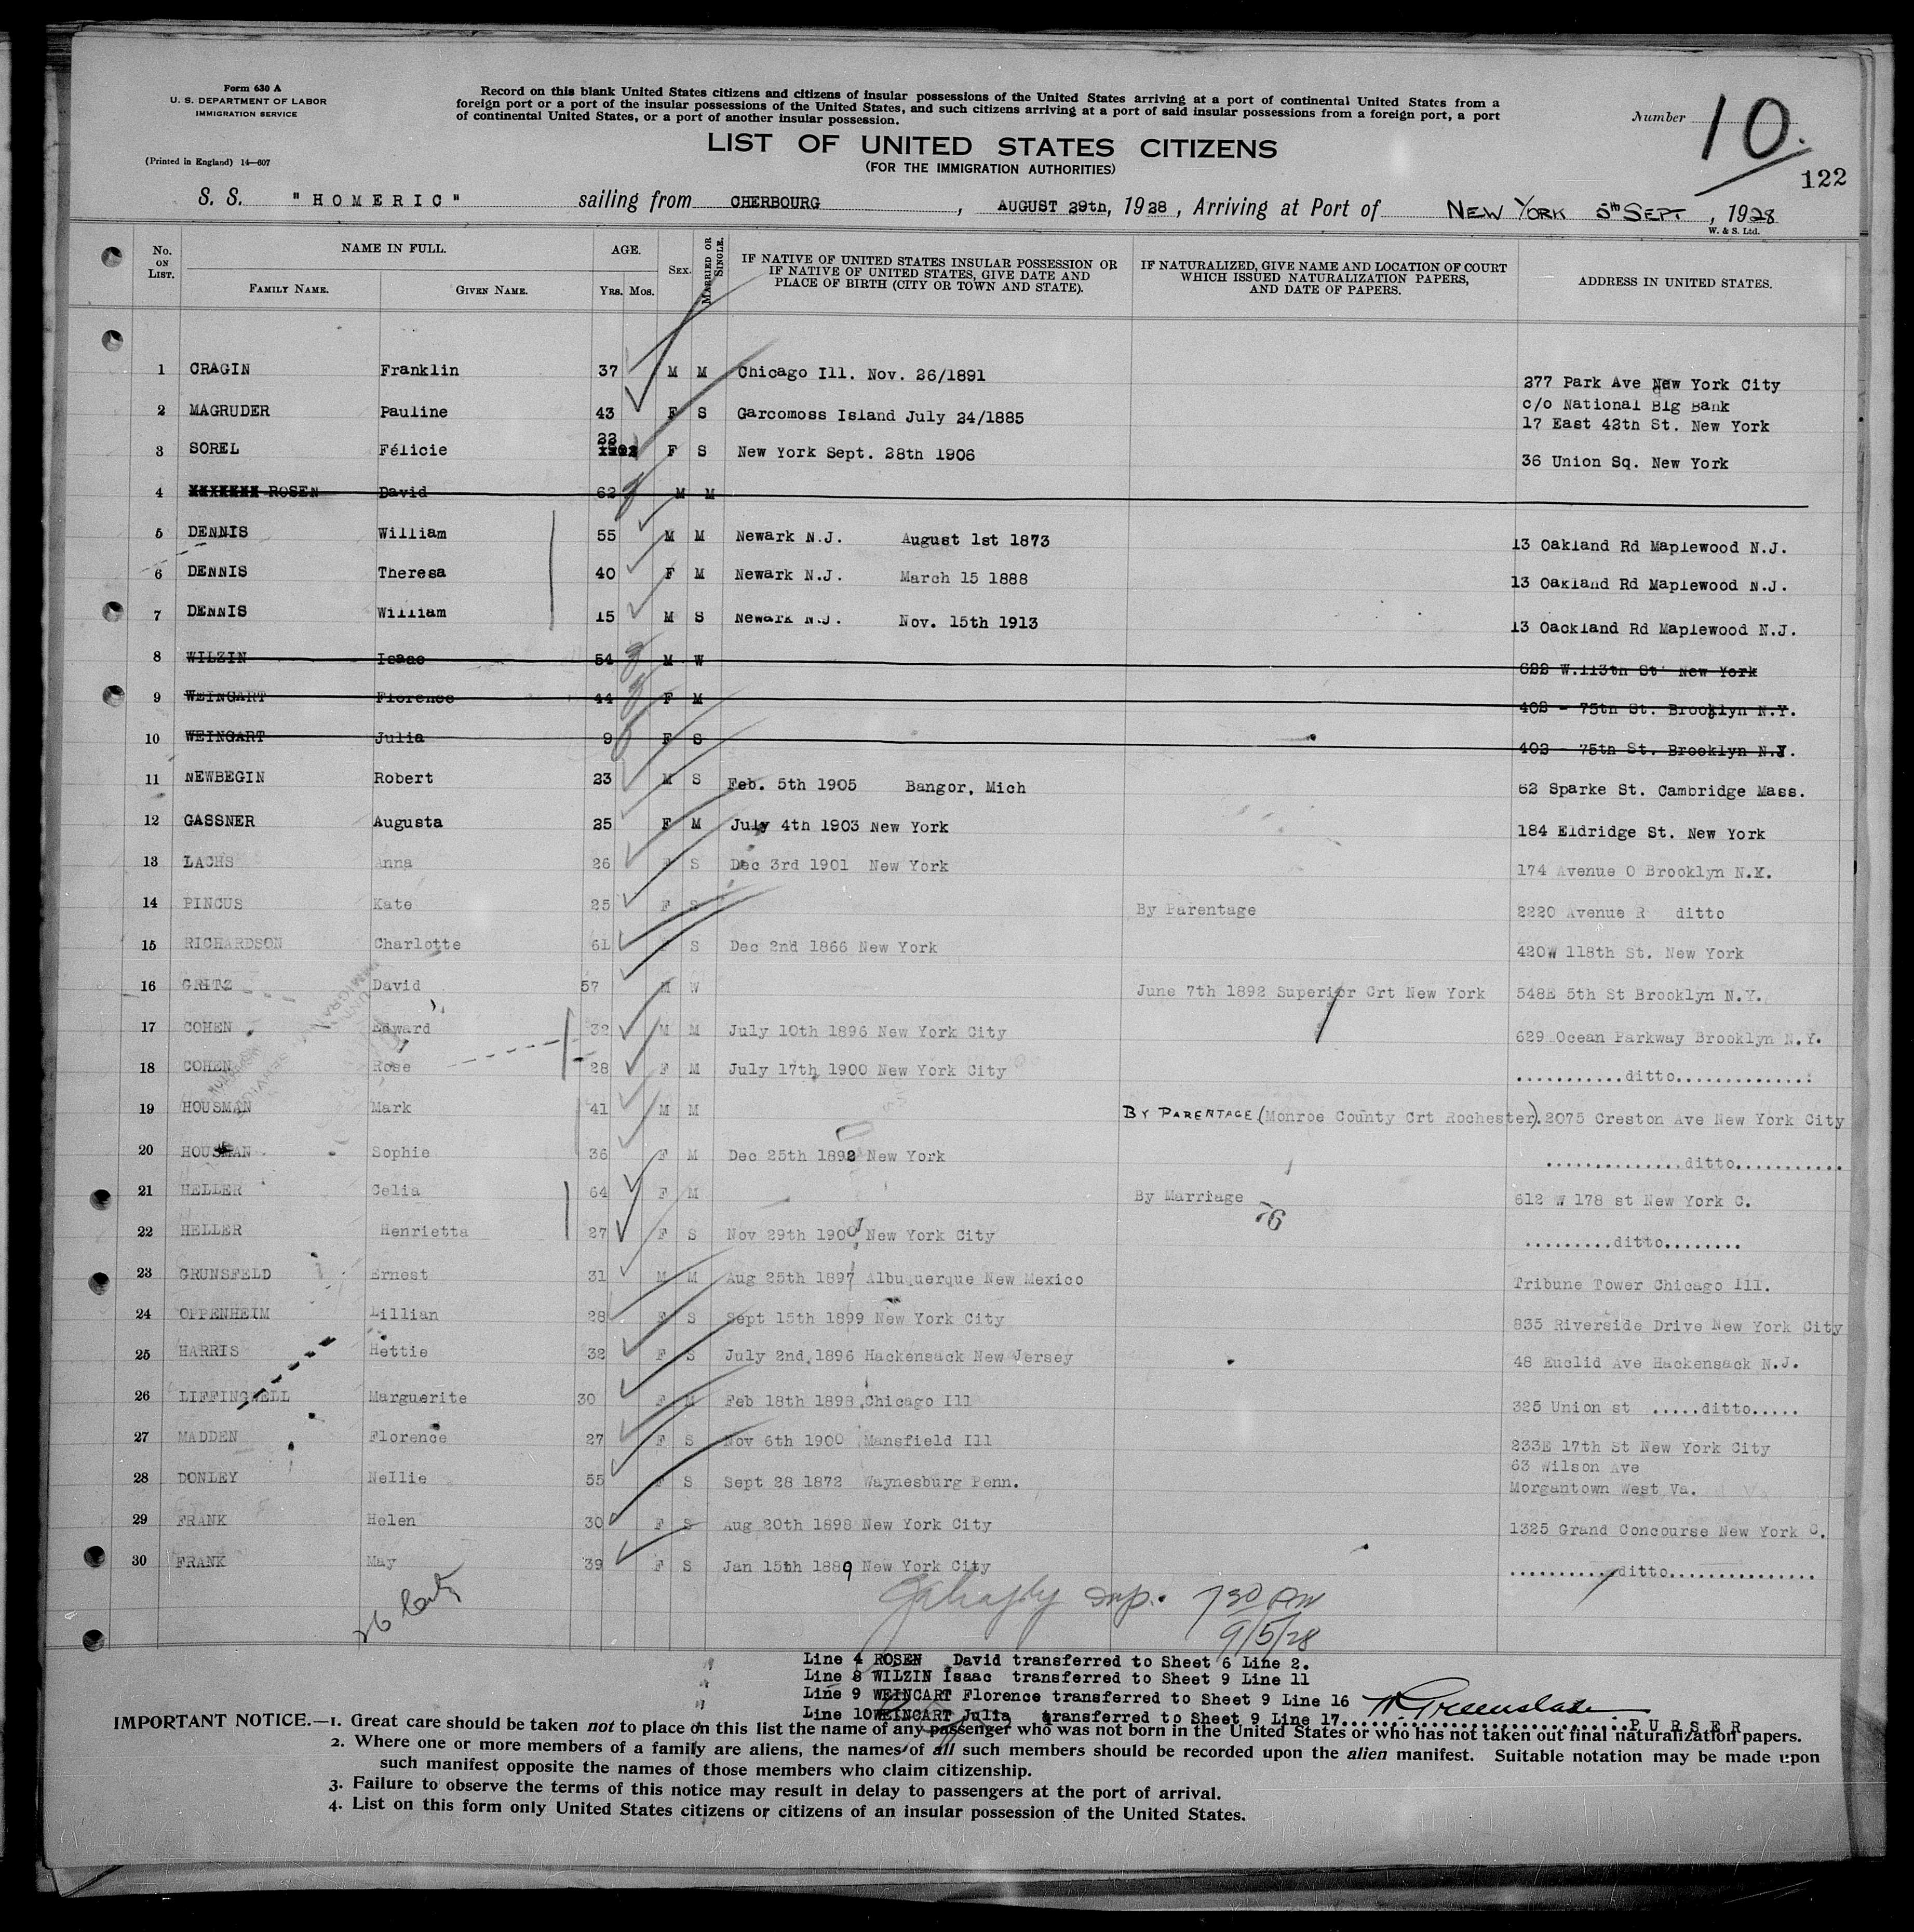 Form 630 A
U. S. DEPARTMENT OF LABOR
IMMIGRATION SERVICE
(Printed in England) 14—607
Record on this blank United States citizens and citizens of insular possessions of the United States arriving at a port of continental United States from a
foreign port or a port of the insular possessions of the United States, and such citizens arriving at a port of said insular possessions from a foreign port, a port
of continental United States, or a port of another insular possession.
Number 10.
122
LIST OF UNITED STATES CITIZENS
(FOR THE IMMIGRATION AUTHORITIES)
S. S. "HOMERIC" sailing from CHERBOURG, AUGUST 29th, 1928, Arriving at Port of NEW YORK 5th SEPT, 1928
W. & S. Ltd.
No. ON LIST. NAME IN FULL. FAMILY NAME. GIVEN NAME. AGE. Yrs. Mos. SEX. MARRIED OR SINGLE. IF NATIVE OF UNITED STATES INSULAR POSSESSION OR IF NATIVE OF UNITED STATES, GIVE DATE AND PLACE OF BIRTH (CITY OR TOWN AND STATE). IF NATURALIZED, GIVE NAME AND LOCATION OF COURT WHICH ISSUED NATURALIZATION PAPERS, AND DATE OF PAPERS. ADDRESS IN UNITED STATES.
1 CRAGIN Franklin 37 M M Chicago Ill. Nov. 26/1891 277 Park Ave New York City
2 MAGRUDER Pauline 43 F S Garcomoss Island July 24/1885 c/o National Big Bank
17 East 42th St. New York
3 SOREL Félicie 22 F S New York Sept. 28th 1906 36 Union Sq. New York
4 ROSEN David 62 M M
5 DENNIS William 55 M M Newark N.J. August 1st 1873 13 Oakland Rd Maplewood N.J.
6 DENNIS Theresa 40 F M Newark N.J. March 15 1888 13 Oakland Rd Maplewood N.J.
7 DENNIS William 15 M S Newark N.J. Nov. 15th 1913 13 Oackland Rd Maplewood N.J.
8 WILZIN Isaac 54 M W 622 W.113th St New York
9 WEINGART Florence 44 F M 402 - 75th St. Brooklyn N.Y.
10 WEINGART Julia 9 F S 402 - 75th St. Brooklyn N.Y.
11 NEWBEGIN Robert 23 M S Feb. 5th 1905 Bangor, Mich 62 Sparke St. Cambridge Mass.
12 GASSNER Augusta 25 F M July 4th 1903 New York 184 Eldridge St. New York
13 LACHS Anna 26 F S Dec 3rd 1901 New York 174 Avenue O Brooklyn N.Y.
14 PINCUS Kate 25 F S By Parentage 2220 Avenue R ditto
15 RICHARDSON Charlotte 61 F S Dec 2nd 1866 New York 420W 118th St. New York
16 GRITZ David 57 M W June 7th 1892 Superior Crt New York 548E 5th St Brooklyn N.Y.
17 COHEN Edward 32 M M July 10th 1896 New York City 629 Ocean Parkway Brooklyn N.Y.
18 COHEN Rose 28 F M July 17th 1900 New York City ...........ditto..............
19 HOUSMAN Mark 41 M M BY PARENTAGE (Monroe County Crt Rochester). 2075 Creston Ave New York City
20 HOUSMAN Sophie 36 F M Dec 25th 1892 New York ..............ditto...........
21 HELLER Celia 64 F M By Marriage 612 W 178 st New York C.
22 HELLER Henrietta 27 F S Nov 29th 1901 New York City .........ditto........
23 GRUNSFELD Ernest 31 M M Aug 25th 1897 Albuquerque New Mexico Tribune Tower Chicago Ill.
24 OPPENHEIM Lillian 28 F S Sept 15th 1899 New York City 835 Riverside Drive New York City
25 HARRIS Hettie 32 F S July 2nd 1896 Hackensack New Jersey 48 Euclid Ave Hackensack N.J.
26 LIFFINGWELL Marguerite 30 F M Feb 18th 1898 Chicago Ill 325 Union st .....ditto.....
27 MADDEN Florence 27 F S Nov 6th 1900 Mansfield Ill 233E 17th St New York City
28 DONLEY Nellie 55 F S Sept 28 1872 Waynesburg Penn. 63 Wilson Ave
Morgantown West Va.
29 FRANK Helen 30 F S Aug 20th 1898 New York City 1325 Grand Concourse New York C.
30 FRANK May 39 F S Jan 15th 1889 New York City ...........ditto...............
Insp. 7 30 PM
9/5/28
Line 4 ROSEN David transferred to Sheet 6 Line 2.
Line 8 WILZIN Isaac transferred to Sheet 9 Line 11
Line 9 WEINCART Florence transferred to Sheet 9 Line 16
Line 10 WEINCART Julia transferred to Sheet 9 Line 17. Greenslade PURSER
IMPORTANT NOTICE.—1. Great care should be taken not to place on this list the name of any passenger who was not born in the United States or who has not taken out final naturalization papers.
2. Where one or more members of a family are aliens, the names of all such members should be recorded upon the alien manifest. Suitable notation may be made upon
such manifest opposite the names of those members who claim citizenship.
3. Failure to observe the terms of this notice may result in delay to passengers at the port of arrival.
4. List on this form only United States citizens or citizens of an insular possession of the United States.